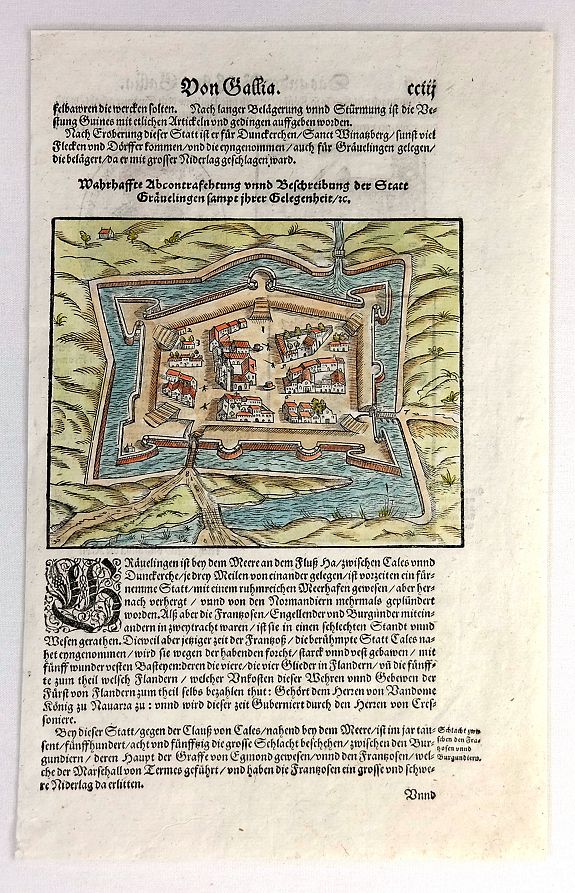 Von Gallia. cciij
kelbawren die wercken solten. Nach langer Belägerung vnnd Stürmung ist die Ve-
stung Guines mit etlichen Artickeln vnd gedingen auffgeben worden.
Nach Eroberung dieser Statt ist er für Dunckerchen/ Sanct Winatzberg/ sunst viel
Flecken vnd Dörffer kommen/ vnd die eyngenommen/ auch für Gräuelingen gelegen/
die belägert/ da er mit grosser Niderlag geschlagen ward.
Wahrhaffte Abcontrafehtung vnnd Beschreibung der Statt
Gräuelingen sampt jhrer Gelegenheit/ ꝛc.
GRäuelingen ist bey dem Meere an dem Fluß Ha/ zwischen Cales vnnd
Dunckerche/ je drey Meilen von einander gelegen/ ist vorzeiten ein für-
nemme Statt/ mit einem ruhmreichen Meerhafen gewesen/ aber her-
nach verhergt/ vnnd von den Normandiern mehrmals geplündert
worden. Alß aber die Frantzosen/ Engellender vnd Burgunder mitein-
andern in zweytracht waren/ ist sie in einen schlechten Standt vnnd
Wesen gerathen. Dieweil aber jetziger zeit der Frantzoß/ die berühmpte Statt Cales na-
het eyngenommen/ wird sie wegen der habenden forcht/ starck vnnd vest gebawen/ mit
fünff wunder vesten Basteyen: deren die viere/ die vier Glieder in Flandern/ vñ die fünff-
te zum theil welsch Flandern/ welcher Vnkosten dieser Wehren vnnd Gebewen der
Fürst von Flandern zum theil selbs bezahlen thut: Gehört dem Herren von Vandome
König zu Nauarra zu: vnnd wird dieser zeit Guberniert durch den Herren von Cres-
soniere.
Bey dieser Statt/ gegen der Clauß von Cales/ nahend bey dem Meere/ ist im jar tau-
sent/ fünffhundert/ acht vnd fünfftzig die grosse Schlacht beschehen/ zwischen den Bur-
gundiern/ deren Haupt der Graffe von Egmond gewesen/ vnnd den Frantzosen/ wel-
che der Marschall von Termes geführt/ vnd haben die Frantzosen ein grosse vnd schwe-
re Niderlag da erlitten.
Schlacht zwi-
schen den Fra-
tzosen vnnd
Burgundiern.
Vnnd